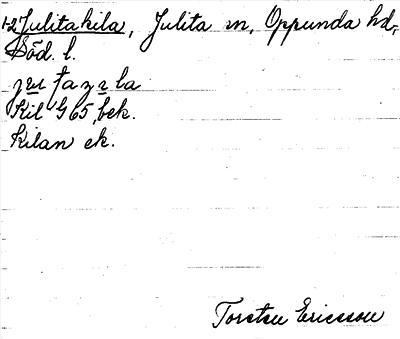 1-2 Julitakila, Julita sn, Oppunda hd,
Söd. l.
Kil G 65, bek.
Kilan ek.
Torsten Ericsson